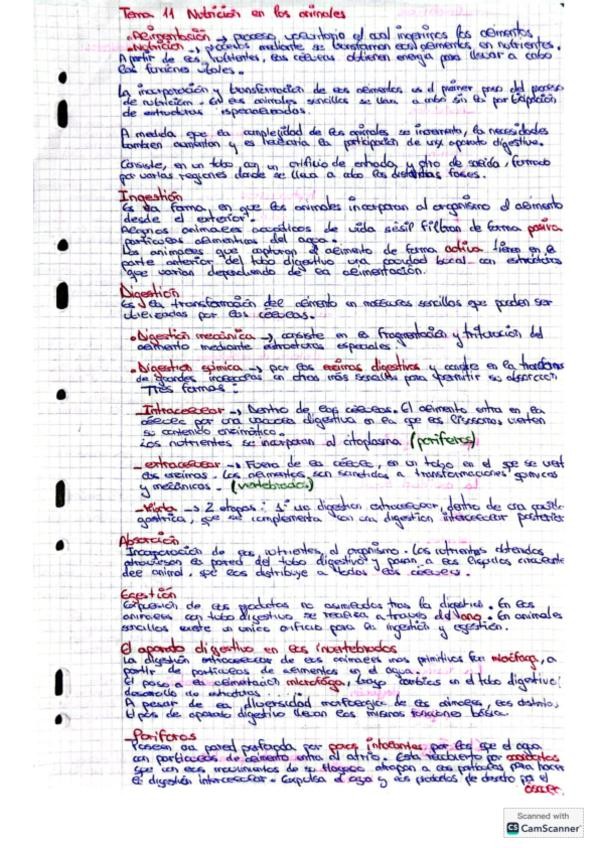 Tema 11 Nutrición en los animales
•Alimentación → proceso voluntario el cual ingerimos los alimentos.
•Nutrición → procesos mediante se transforman esos alimentos en nutrientes.
A partir de los nutrientes, las células obtienen energía para llevar a cabo
las funciones vitales.
La incorporación y transformación de los alimentos es el primer paso del proceso
de nutrición. En los animales sencillos se lleva a cabo sin la participación
de estructuras especializadas.
A medida que la complejidad de los animales se incrementa, las necesidades
tambien aumentan y es necesaria la participación de un aparato digestivo.
Consiste, en un tubo, con un orificio de entrada y otro de salida, formado
por varias regiones donde se lleva a cabo las distintas fases.
Ingestión
Es la forma, en que los animales incorporan al organismo el alimento
desde el exterior.
Algunos animales acuáticos de vida sésil filtran de forma pasiva
partículas alimenticias del agua.
Los animales que capturan el alimento de forma activa tienen en la
parte anterior del tubo digestivo una cavidad bucal con estructuras
que varían dependiendo de la alimentación.
Digestión
Es la transformación del alimento en moléculas sencillas que pueden ser
utilizadas por las células.
•Digestión mecánica → consiste en la fragmentación y trituración del
alimento mediante estructuras especiales.
•Digestion química → por las enzimas digestivas y consiste en la
de grandes moléculas en otras más sencillas para permitir su absorción
Tres formas:
-Intracelular → Dentro de las células. El alimento entra en la
célula por una vacuola digestiva en la que los lisosomas vierten
su contenido enzimático.
Los nutrientes se incorporan al citoplasma (poríferos)
-extracelular → Fuera de la célula, en un tubo en el que se
las enzimas. Los alimentos son sometidos a transformaciones químicas
y mecánicas. (vertebrados)
-Mixta → 2 etapas: 1º una digestion extracelular, dentro de una
gástrica, que se complementa con una digestion intracelular posterior
Absorción
Incorporación de los nutrientes al organismo. Los nutrientes obtenidos
atraviesan la pared del tubo digestivo y pasan a los líquidos
del animal, que los distribuye a todas las células.
Egestión
Expulsión de los productos no asimilados tras la digestión. En los
animales con tubo digestivo se realiza a través del ano. En animales
sencillos existe un único orificio para la ingestión y egestión.
El aparato digestivo en los invertebrados
La digestión intracelular de los animales mas primitivos fue micrófaga, a
partir de partículas de alimentos en el agua.
El paso a la alimentación macrófaga, trajo cambios en el tubo digestivo:
desarrollo de estructuras ....
A pesar de la diversidad morfológica de los animales, los distintos
tipos de aparato digestivo llevan las mismas funciones básicas.
-Poríferos
Poseen una pared perforada por poros inhalantes por los que el agua
con partículas de alimento entra al atrio. Esta recubierto por coanocitos
que con los movimientos de su flagelo atrapan a las partículas para hacer
la digestión intracelular. Expulsa el agua y los productos de desecho por el
ósculo.
Scanned with
CS CamScanner